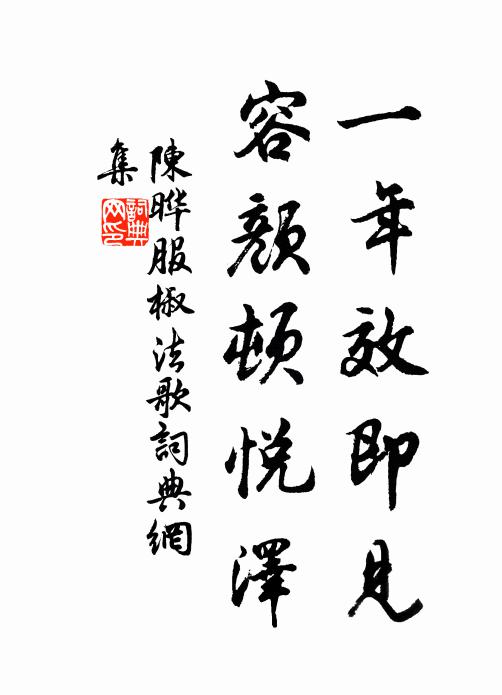 一年效即見
容顏頓悅澤
陳晔服椒法歌詞典網
集
詞典
网印